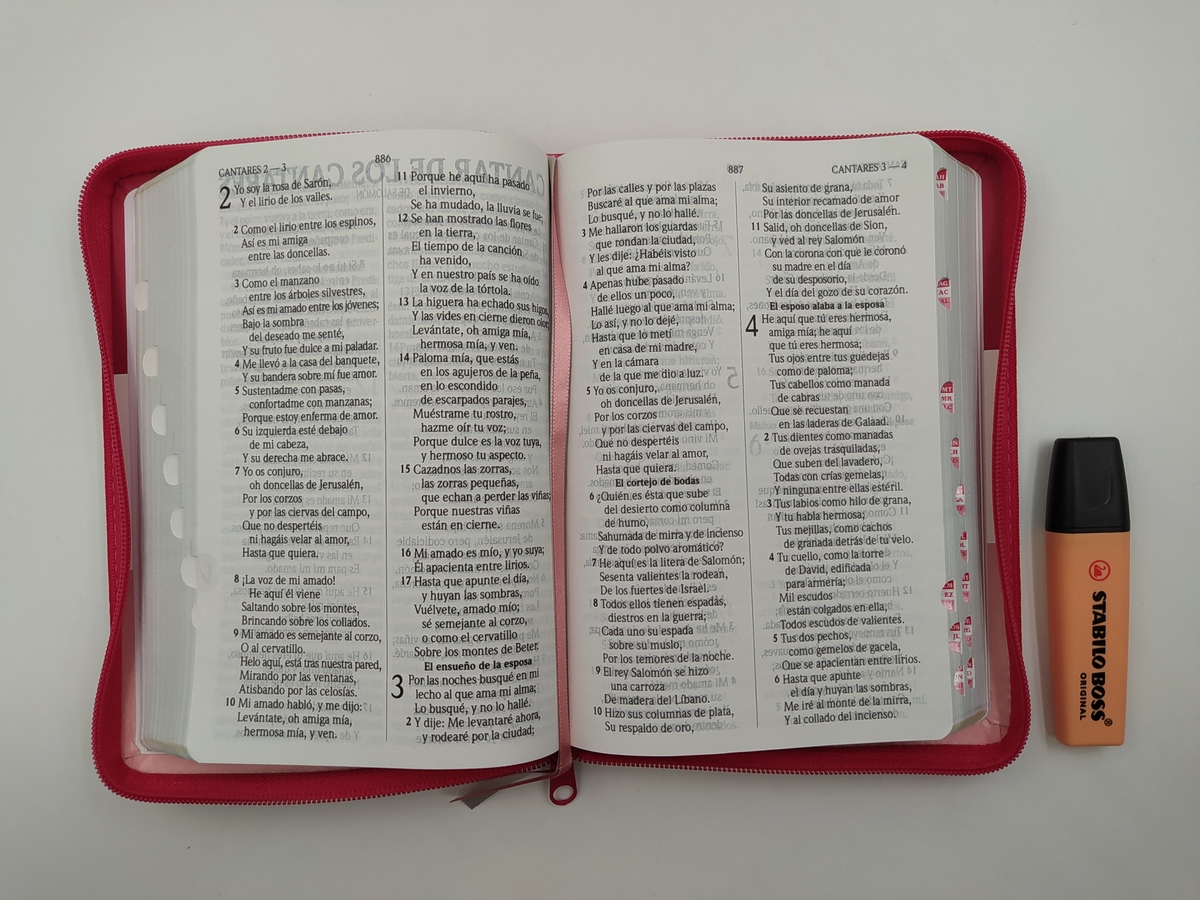 CANTARES 2—3
886
2 Yo soy la rosa de Sarón,
Y el lirio de los valles.
2 Como el lirio entre los espinos,
Así es mi amiga
entre las doncellas.
3 Como el manzano
entre los árboles silvestres,
Así es mi amado entre los jóvenes;
Bajo la sombra
del deseado me senté,
Y su fruto fue dulce a mi paladar.
4 Me llevó a la casa del banquete,
Y su bandera sobre mí fue amor.
5 Sustentadme con pasas,
confortadme con manzanas;
Porque estoy enferma de amor.
6 Su izquierda esté debajo
de mi cabeza,
Y su derecha me abrace.
7 Yo os conjuro,
oh doncellas de Jerusalén,
Por los corzos
y por las ciervas del campo,
Que no despertéis
ni hagáis velar al amor,
Hasta que quiera.
8 ¡La voz de mi amado!
He aquí él viene
Saltando sobre los montes,
Brincando sobre los collados.
9 Mi amado es semejante al corzo,
O al cervatillo.
Helo aquí, está tras nuestra pared,
Mirando por las ventanas,
Atisbando por las celosías.
10 Mi amado habló, y me dijo:
Levántate, oh amiga mía,
hermosa mía, y ven.
11 Porque he aquí ha pasado
el invierno,
Se ha mudado, la lluvia se fue;
12 Se han mostrado las flores
en la tierra,
El tiempo de la canción
ha venido,
Y en nuestro país se ha oído
la voz de la tórtola.
13 La higuera ha echado sus higos,
Y las vides en cierne dieron olor;
Levántate, oh amiga mía,
hermosa mía, y ven.
14 Paloma mía, que estás
en los agujeros de la peña,
en lo escondido
de escarpados parajes,
Muéstrame tu rostro,
hazme oír tu voz;
Porque dulce es la voz tuya,
y hermoso tu aspecto.
15 Cazadnos las zorras,
las zorras pequeñas,
que echan a perder las viñas;
Porque nuestras viñas
están en cierne.
16 Mi amado es mío, y yo suya;
Él apacienta entre lirios.
17 Hasta que apunte el día,
y huyan las sombras,
Vuélvete, amado mío;
sé semejante al corzo,
o como el cervatillo
Sobre los montes de Beter.
El ensueño de la esposa
3 Por las noches busqué en mi
lecho al que ama mi alma;
Lo busqué, y no lo hallé.
2 Y dije: Me levantaré ahora,
y rodearé por la ciudad;
887
CANTARES 3—4
Por las calles y por las plazas
Buscaré al que ama mi alma;
Lo busqué, y no lo hallé.
3 Me hallaron los guardas
que rondan la ciudad,
Y les dije: ¿Habéis visto
al que ama mi alma?
4 Apenas hube pasado
de ellos un poco,
Hallé luego al que ama mi alma;
Lo así, y no lo dejé,
Hasta que lo metí
en casa de mi madre,
Y en la cámara
de la que me dio a luz.
5 Yo os conjuro,
oh doncellas de Jerusalén,
Por los corzos
y por las ciervas del campo,
Que no despertéis
ni hagáis velar al amor,
Hasta que quiera.
El cortejo de bodas
6 ¿Quién es ésta que sube
del desierto como columna
de humo,
Sahumada de mirra y de incienso
Y de todo polvo aromático?
7 He aquí es la litera de Salomón;
Sesenta valientes la rodean,
De los fuertes de Israel.
8 Todos ellos tienen espadas,
diestros en la guerra;
Cada uno su espada
sobre su muslo,
Por los temores de la noche.
9 El rey Salomón se hizo
una carroza
De madera del Líbano.
10 Hizo sus columnas de plata,
Su respaldo de oro,
Su asiento de grana,
Su interior recamado de amor
Por las doncellas de Jerusalén.
11 Salid, oh doncellas de Sion,
y ved al rey Salomón
Con la corona con que le coronó
su madre en el día
de su desposorio,
Y el día del gozo de su corazón.
El esposo alaba a la esposa
4 He aquí que tú eres hermosa,
amiga mía; he aquí
que tú eres hermosa;
Tus ojos entre tus guedejas
como de paloma;
Tus cabellos como manada
de cabras
Que se recuestan
en las laderas de Galaad.
2 Tus dientes como manadas
de ovejas trasquiladas,
Que suben del lavadero,
Todas con crías gemelas,
Y ninguna entre ellas estéril.
3 Tus labios como hilo de grana,
Y tu habla hermosa;
Tus mejillas, como cachos
de granada detrás de tu velo.
4 Tu cuello, como la torre
de David, edificada
para armería;
Mil escudos
están colgados en ella,
Todos escudos de valientes.
5 Tus dos pechos,
como gemelos de gacela,
Que se apacientan entre lirios.
6 Hasta que apunte
el día y huyan las sombras,
Me iré al monte de la mirra,
Y al collado del incienso.
STABILO BOSS®
ORIGINAL